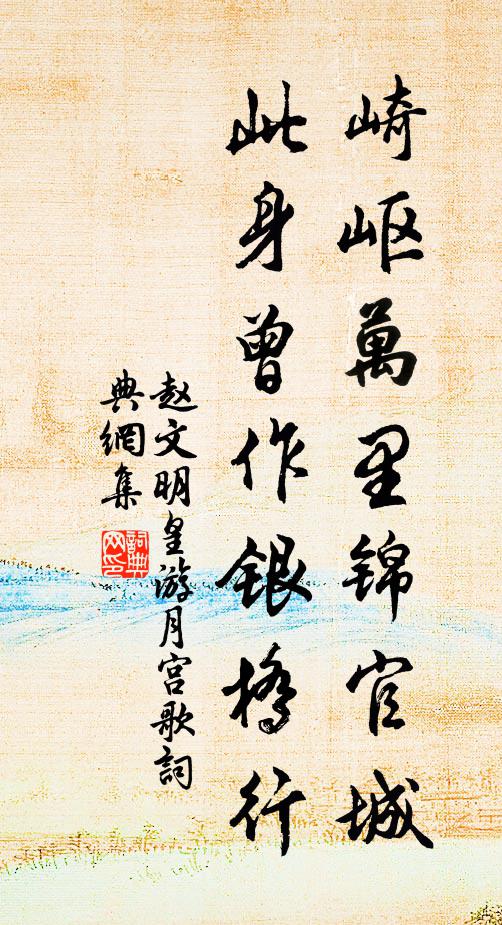 崎岖萬里锦官城
此身曾作银橋行
赵文明皇游月宫歌詞
典網集
詞典网印